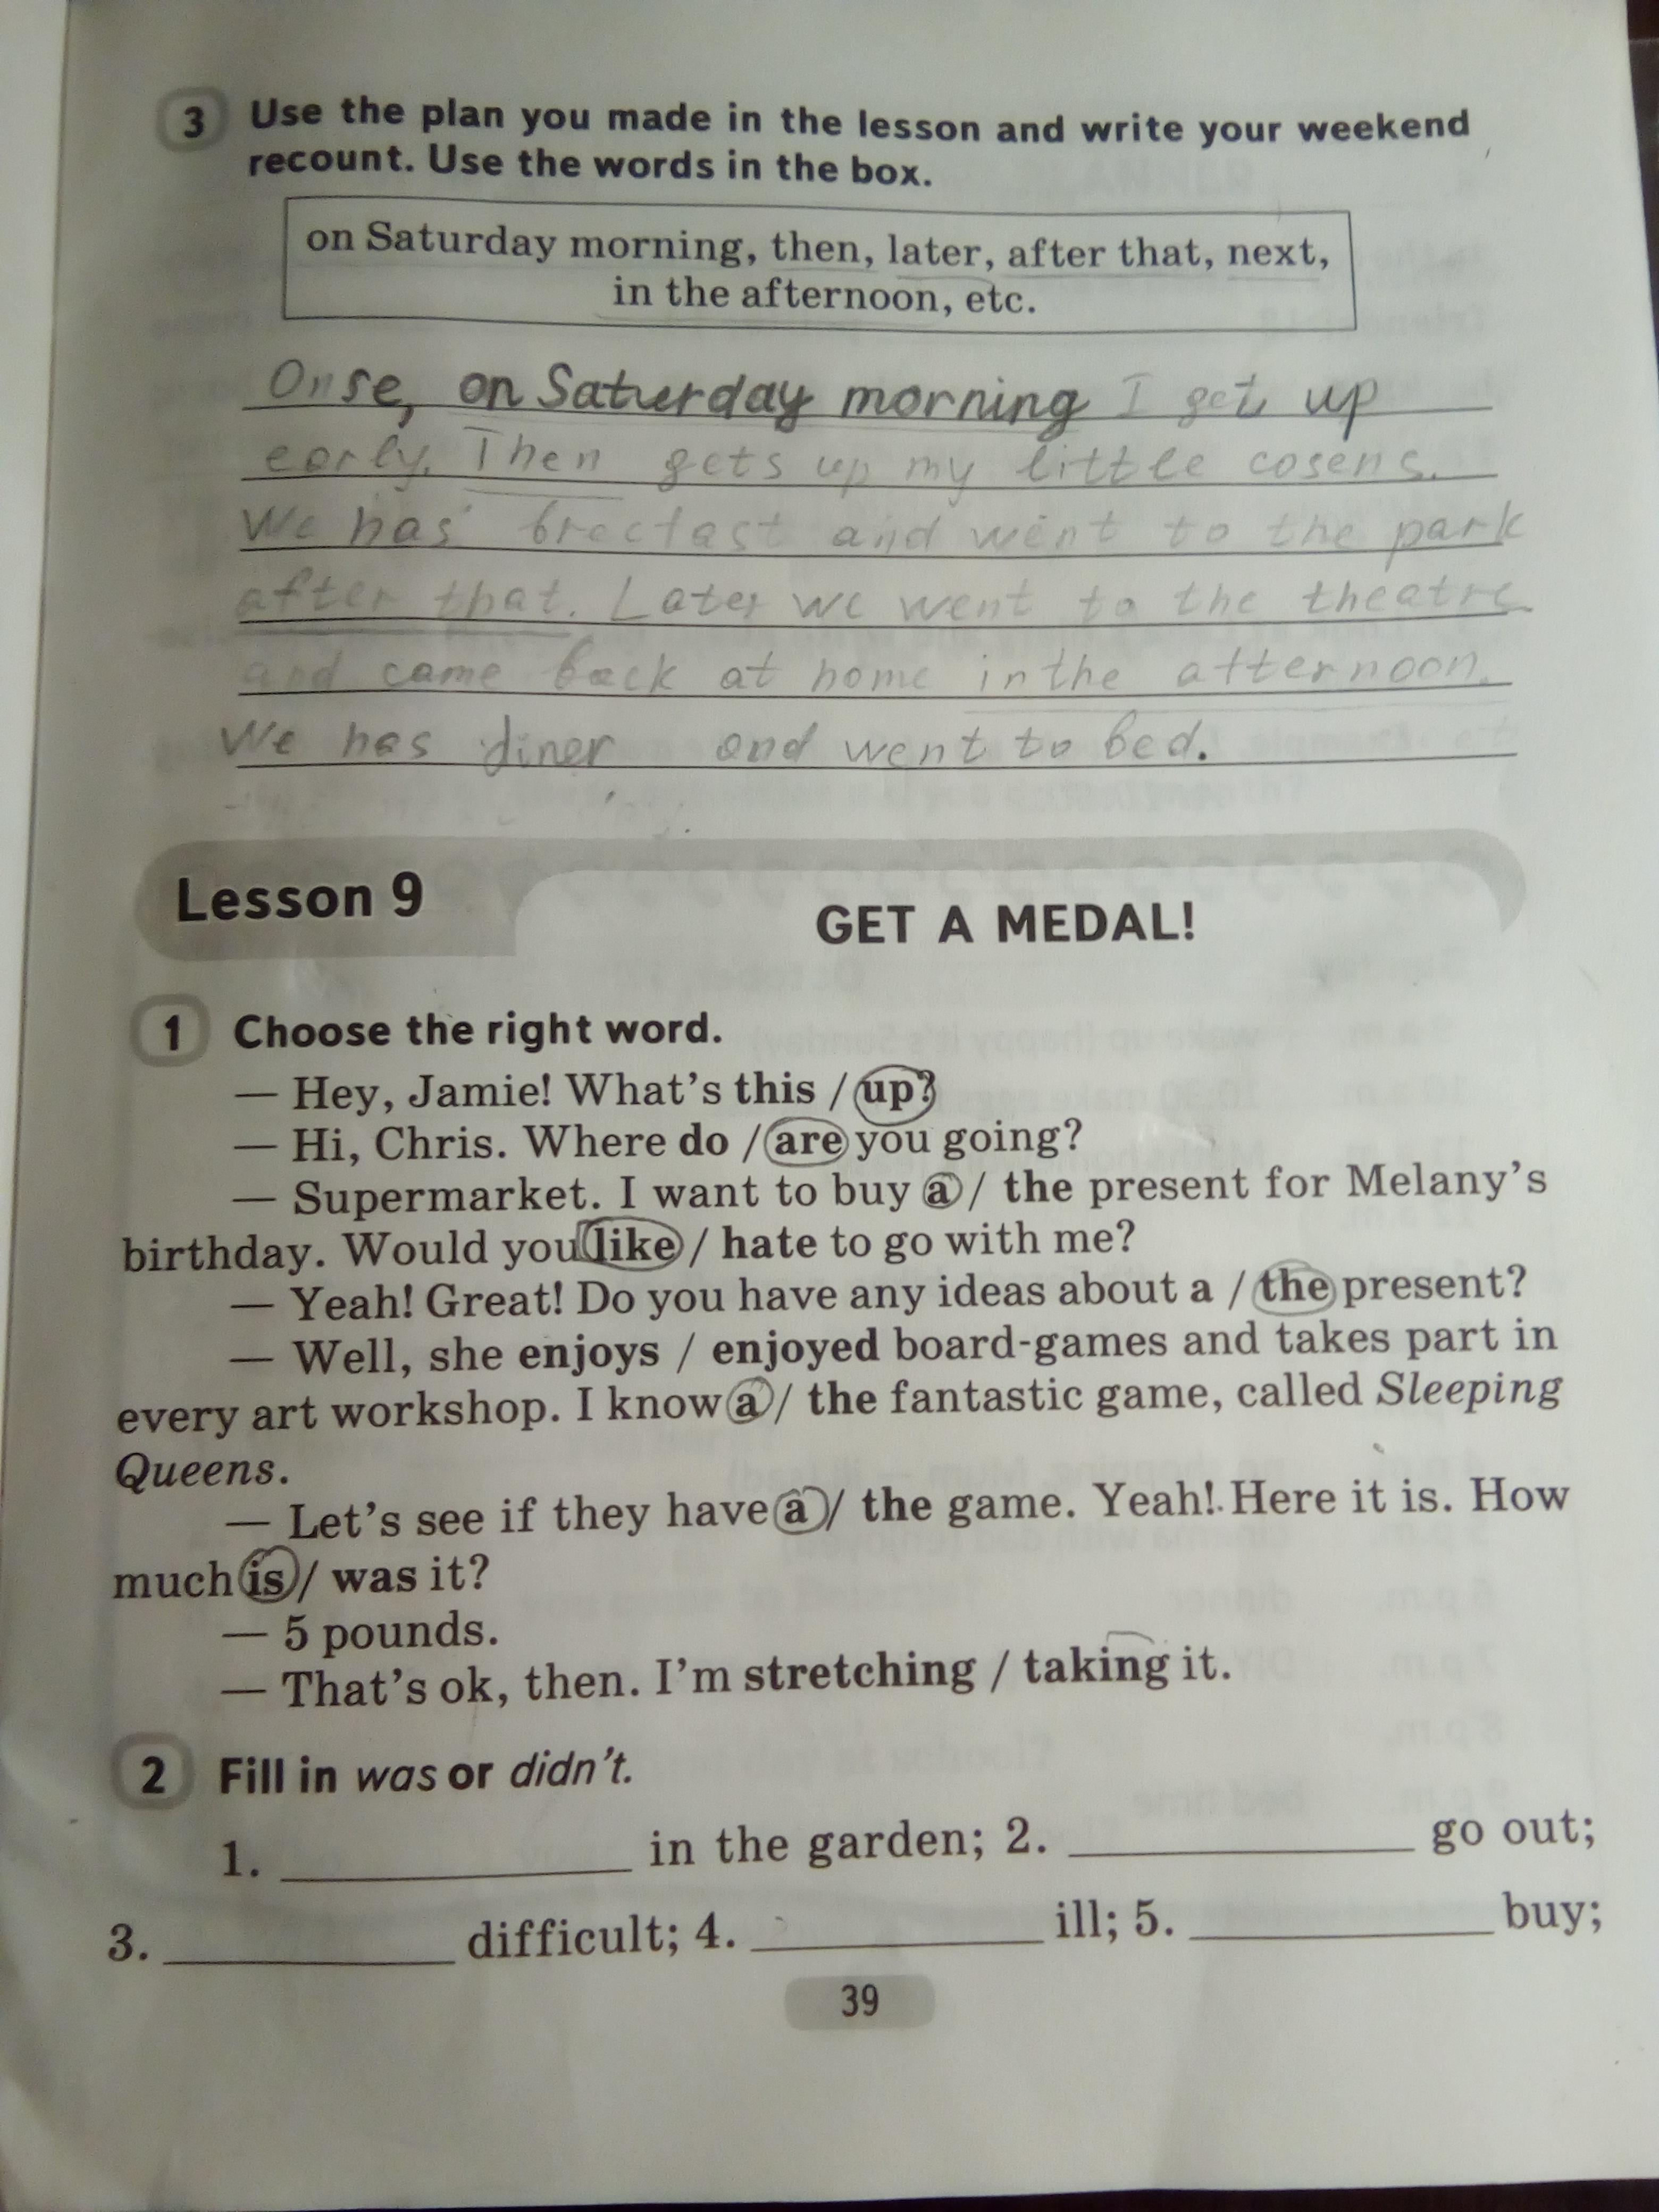 3 Use the plan you made in the lesson and write your weekend
recount. Use the words in the box.
on Saturday morning, then, later, after that, next,
in the afternoon, etc.
Onse, on Saturday morning I get up
early. Then gets up my little cosens.
We has brecfast and went to the park
after that. Later we went to the theatre
and came back at home in the afternoon.
We has diner and went to bed.
Lesson 9
GET A MEDAL!
1 Choose the right word.
— Hey, Jamie! What's this / up?
— Hi, Chris. Where do / are you going?
— Supermarket. I want to buy a / the present for Melany's
birthday. Would you like / hate to go with me?
— Yeah! Great! Do you have any ideas about a / the present?
— Well, she enjoys / enjoyed board-games and takes part in
every art workshop. I know a / the fantastic game, called Sleeping
Queens.
— Let's see if they have a / the game. Yeah! Here it is. How
much is / was it?
— 5 pounds.
— That's ok, then. I'm stretching / taking it.
2 Fill in was or didn't.
1. ____________ in the garden; 2. ____________ go out;
3. ____________ difficult; 4. ____________ ill; 5. ____________ buy;
39